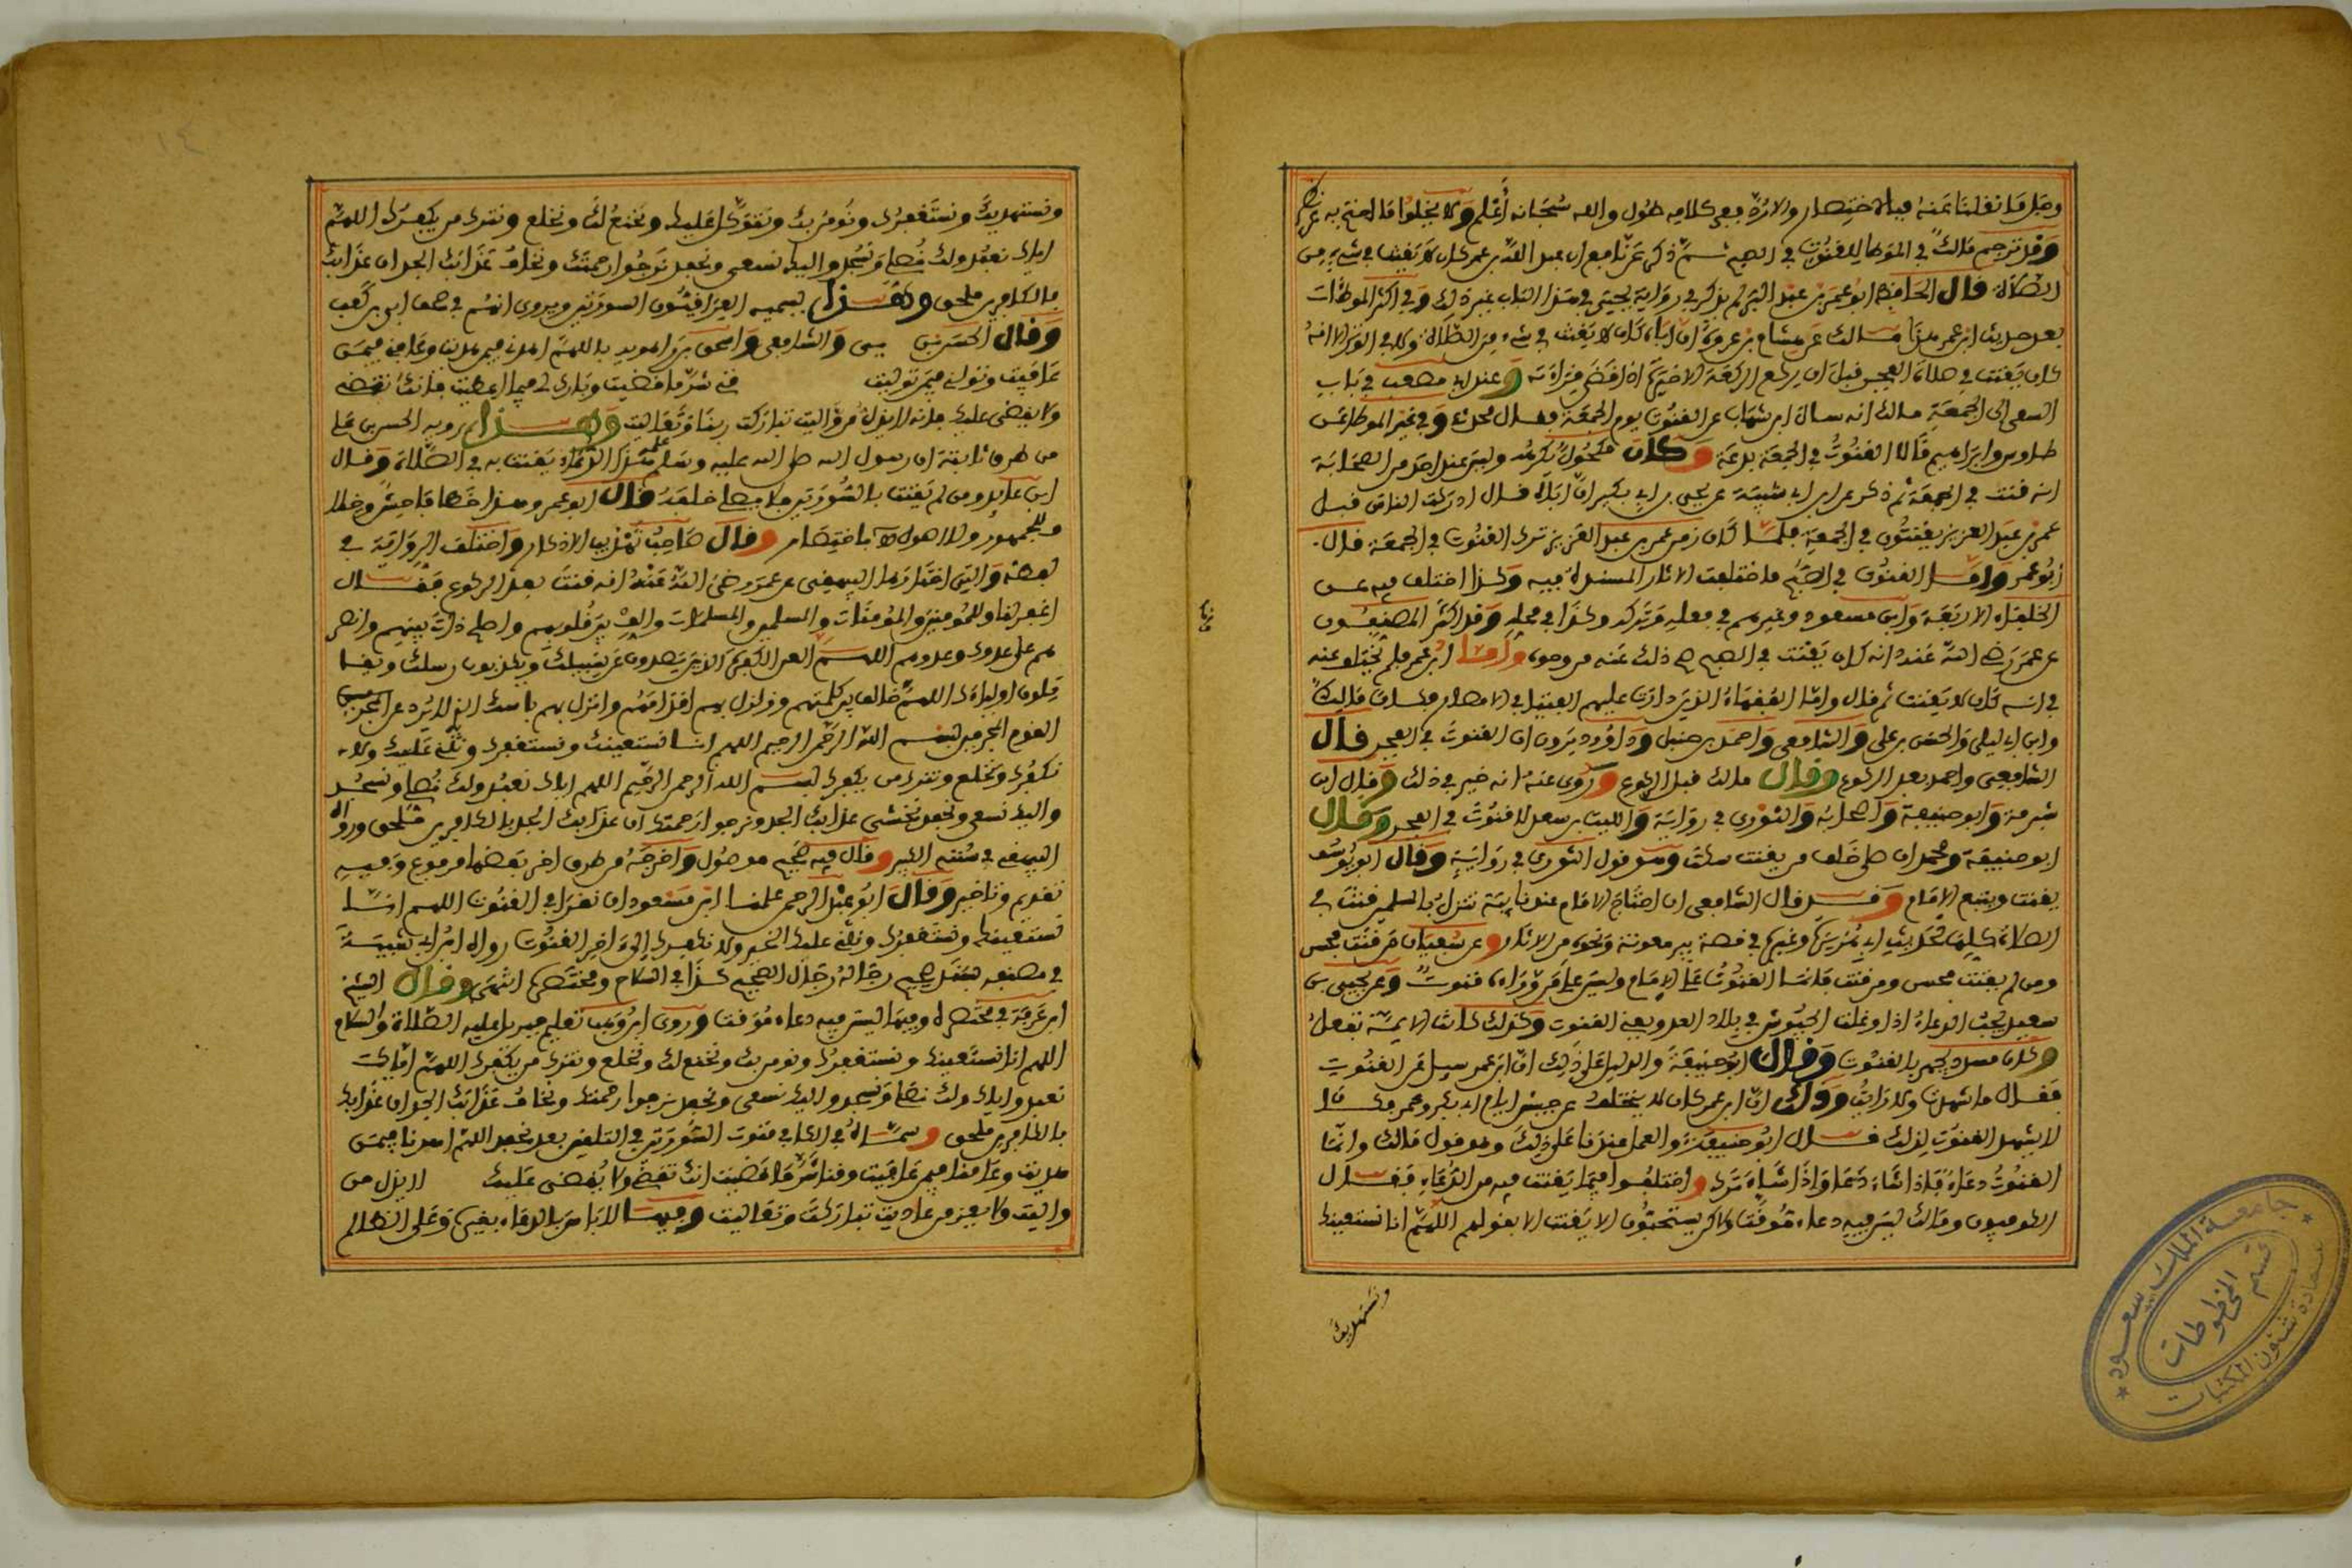 وقد ترجم مالك في الموطا للقنوت في الصبح ثم ذكر عن نافع ان عبد الله بن عمر كان لا يقنت في شيء من
الصلاة قال الحافظ ابو عمر بن عبد البر لم يذكر في رواية يحيى في هذا الباب غير ذلك وفي اكثر الموطآت
بعد حديث ابن عمر هذا مالك عن هشام بن عروة ان اباه كان لا يقنت في شيء من الصلاة ولا في الوتر الا انه
كان يقنت في صلاة الفجر قبل ان يركع الركعة الاخيرة اذا قضى قراءته وعند ابي مصعب في باب
السعي الى الجمعة مالك انه سال ابن شهاب عن القنوت يوم الجمعة فقال محدث وفي غير الموطا عن
طاوس وابراهيم قالا القنوت في الجمعة بدعة وكان مكحول يكرهه وليس عند احد من الصحابة
انه قنت في الجمعة ثم ذكر عن ابن ابي شيبة عن يحيى بن ابي بكير ان اباه قال ادركت الناس قبل
عمر بن عبد العزيز يقنتون في الجمعة فلما كان زمن عمر بن عبد العزيز ترك القنوت في الجمعة قال
ابو عمر واما القنوت في الصبح فاختلفت الاثار المسندة فيه وكذا اختلف فيه عن
الخلفاء الاربعة وابن مسعود وغيرهم في فعله وتركه وكذا في محله وقد اكثر المصنفون
عن عمر رضي الله عنه انه كان يقنت في الصبح صح ذلك عنه من وجوه واما ابن عمر فلم يختلف عنه
في انه كان لا يقنت ثم قال واما الفقهاء الذين دارت عليهم الفتيا في الامصار فكان مالك
وابن ابي ليلى والحسن بن علي والشافعي واحمد بن حنبل وداوود يرون ان القنوت في الفجر قال
الشافعي واحمد بعد الركوع وقال مالك قبل الركوع وروي عنه انه خير في ذلك وقال ابن
شبرمة وابو حنيفة واصحابه والثوري في رواية والليث بن سعد لا قنوت في الفجر وقال
ابو حنيفة ومحمد ان صلى خلف من يقنت سكت وهو قول الثوري في رواية وقال ابو يوسف
يقنت ويتبع الامام وقد قال الشافعي ان احتاج الامام عند نايبة تنزل بالمسلمين قنت في
الصلاة كلها لحديث ابي هريرة وغيره في قصة بير معونة ونحوه من الاثار وعن سفيان من قنت فحسن
ومن لم يقنت فحسن ومن قنت فانما القنوت على الامام وليس على من وراءه قنوت وعن يحيى بن
سعيد يجب الدعاء اذا وغلت الجيوش في بلاد العدو يعني القنوت وكذلك كانت الايمة تفعل
وكان مسدد يجهر بالقنوت وقال ابو حنيفة والدليل على ذلك ان ابن عمر سيل عن القنوت
فقال ما شهدت ولا رايت
لا يشهد القنوت لذلك قال ابو حنيفة والعمل عندنا على ذلك وهو قول مالك وانما
القنوت دعاء فاذا شاء دعا واذا شاء ترك واختلفوا فيما يقنت فيه من الدعاء فقال
الكوفيون ومالك ليس فيه دعاء موقت ولاكن يستحبون الا يقنت الا بقولهم اللهم انا نستعينك
ونستهديك
ونستهديك ونستغفرك ونومن بك ونتوكل عليك ونخنع لك ونخلع ونترك من يكفرك اللهم
اياك نعبد ولك نصلي ونسجد واليك نسعى ونحفد نرجوا رحمتك ونخاف عذابك الجد ان عذابك
بالكافرين ملحق وهذا يسميه العراقيون السورتين ويروى انهما في مصحف ابي بن كعب
وقال الحسن بن حيي والشافعي واسحق بن راهويه باللهم اهدني فيمن هديت وعافني فيمن
عافيت وتولني فيمن توليت قني شر ما قضيت وبارك لي فيما اعطيت فانك تقضي
ولا يقضى عليك فانه لا يذل من واليت تباركت ربنا وتعاليت وهذا يرويه الحسن بن علي
من طرق ثابتة ان رسول الله صلى الله عليه وسلم علمه هذا الدعاء يقنت به في الصلاة وقال
ابن داود ومن لم يقنت بالسورتين فلا يصلى خلفه قال ابو عمر وهذا خطا فاحش وخلاف
للجمهور وللاصول باختصار وقال صاحب تهذيب الاذكار واختلفت الرواية في
لفظه والتي اختارها البيهقي عن عمر رضي الله عنه انه قنت بعد الركوع فقال
اغفر لنا وللمومنين والمومنات والمسلمين والمسلمات والف بين قلوبهم واصلح ذات بينهم وانصر
هم على عدوك وعدوهم اللهم العن الكفرة الذين يصدون عن سبيلك ويكذبون رسلك ويقا
تلون اولياءك اللهم خالف بين كلمتهم وزلزل بهم اقدامهم وانزل بهم باسك الذي لا يرد عن
القوم المجرمين بسم الله الرحمن الرحيم اللهم انا نستعينك ونستغفرك ونثني عليك ولا
نكفرك ونخلع ونترك من يكفرك بسم الله الرحمن الرحيم اللهم اياك نعبد ولك نصلي ونسجد
واليك نسعى ونحفد نخشى عذابك الجد ونرجوا رحمتك ان عذابك الجد بالكافرين ملحق ورواه
البيهقي في سننه الكبير وقال فيه صحيح موصول واخرجه من طرق اخر بعضها مرفوع وفيه
تقديم وتاخير وقال ابو عبد الرحمن علمنا ابن مسعود ان نقرا في القنوت اللهم انا
نستعينك ونستغفرك ونثني عليك الخير ولا نكفرك الى اخر القنوت رواه ابن ابي شيبة
في مصنفه رجاله رجال الصحيح كذا في السلاح ومختصره انتهى وقال الشيخ
ابن عرفة في مختصره وفيها ليس فيه دعاء موقت وروى ابن وهب تعليم جبريل عليه الصلاة والسلام
اللهم انا نستعينك ونستغفرك ونومن بك ونخنع لك ونخلع ونترك من يكفرك اللهم اياك
نعبد ولك نصلي ونسجد واليك نسعى ونحفد نرجوا رحمتك ونخاف عذابك الجد ان عذابك
بالكافرين ملحق وسماه في الكافي قنوت السورتين في التلقين بعد نحفد اللهم اهدنا فيمن
هديت وعافنا فيمن عافيت وقنا شر ما قضيت انك تقضي ولا يقضى عليك لا يذل من
واليت ولا يعز من عاديت تباركت وتعاليت وفيها لا باس بالدعاء بغيره وعلى الظالم
جامعة الملك سعود
قسم المخطوطات
عمادة شئون المكتبات